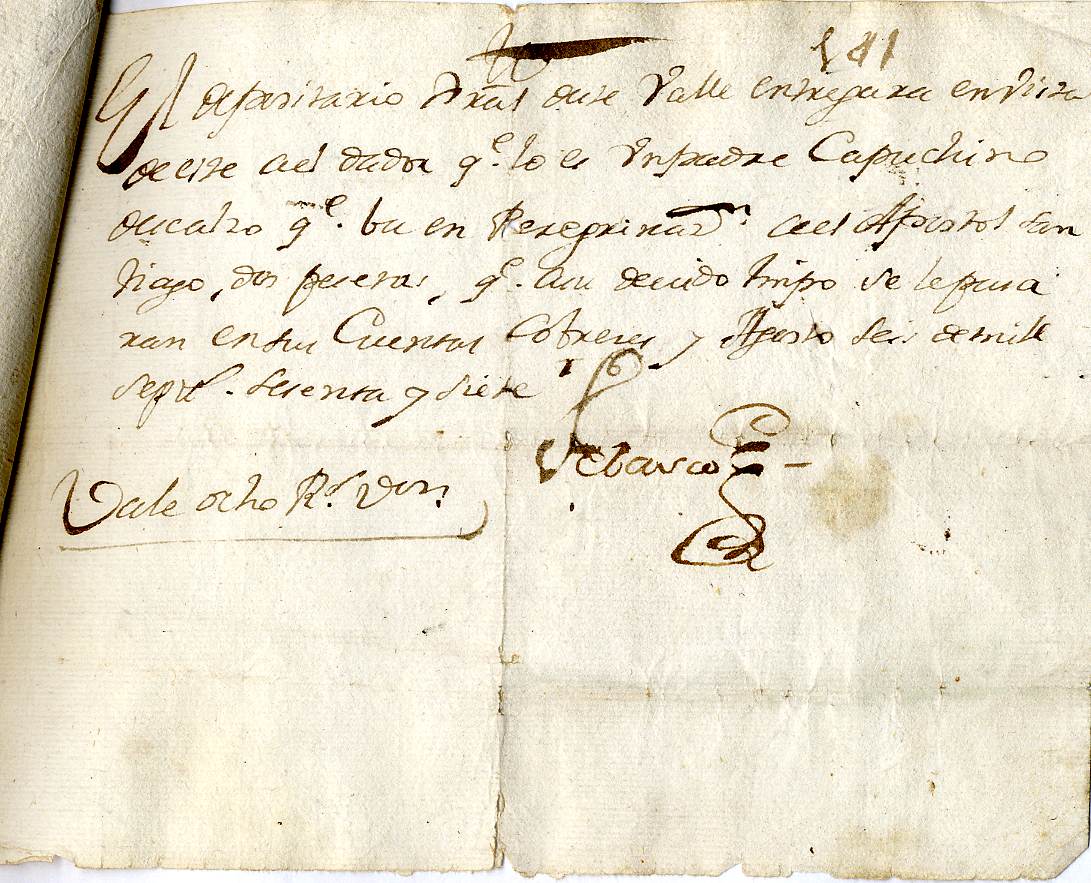 El depositario Gral deste Valle entregara en vista
de este ael dador qe. lo es Un padre Capuchino
descalzo qe. ba en Peregrinazn. ael Apostol San
tiago, dos pesetas, qe. asu devido tmpo se le pasa
ran en sus Cuentas Cobreces y Agosto seis de mill
Septs. sesenta y siete
Vale ocho Rs. Von.